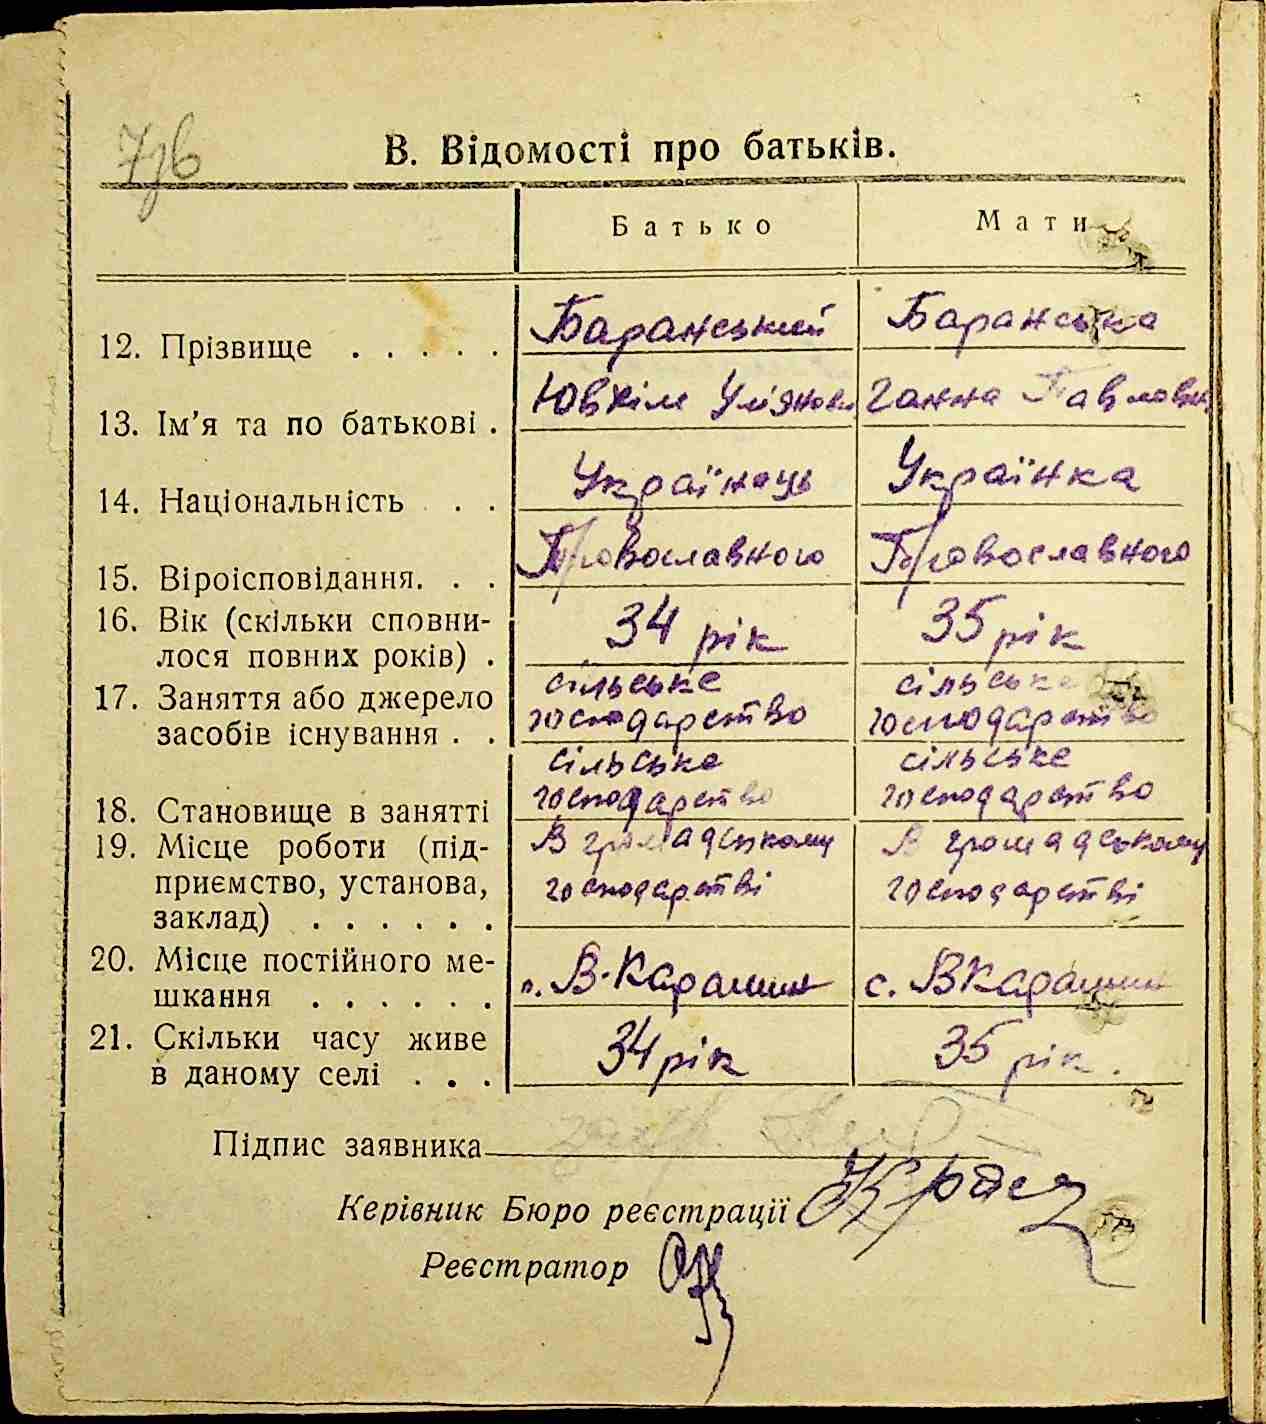 7зв
В. Відомості про батьків.
Батько Мати
12. Прізвище . . . . . Баранський Баранська
13. Ім'я та по батькові . Ювхім Ул'янов Ганна Павловна
14. Національність . . Українець Українка
15. Віроісповідання. . . Православного Православного
16. Вік (скільки сповни-
лося повних років) . 34 рік 35 рік
17. Заняття або джерело сільське сільське
засобів існування . . господарство господарство
сільське сільське
18. Становище в занятті господарство господарство
19. Місце роботи (під- В громадському В громадському
приємство, установа, господарстві господарстві
заклад) . . . . . .
20. Місце постійного ме- с. В-Карашин с. ВКарашин
шкання . . . . . .
21. Скільки часу живе 34 рік 35 рік.
в даному селі . . .
Підпис заявника
Керівник Бюро реєстрації
Реєстратор